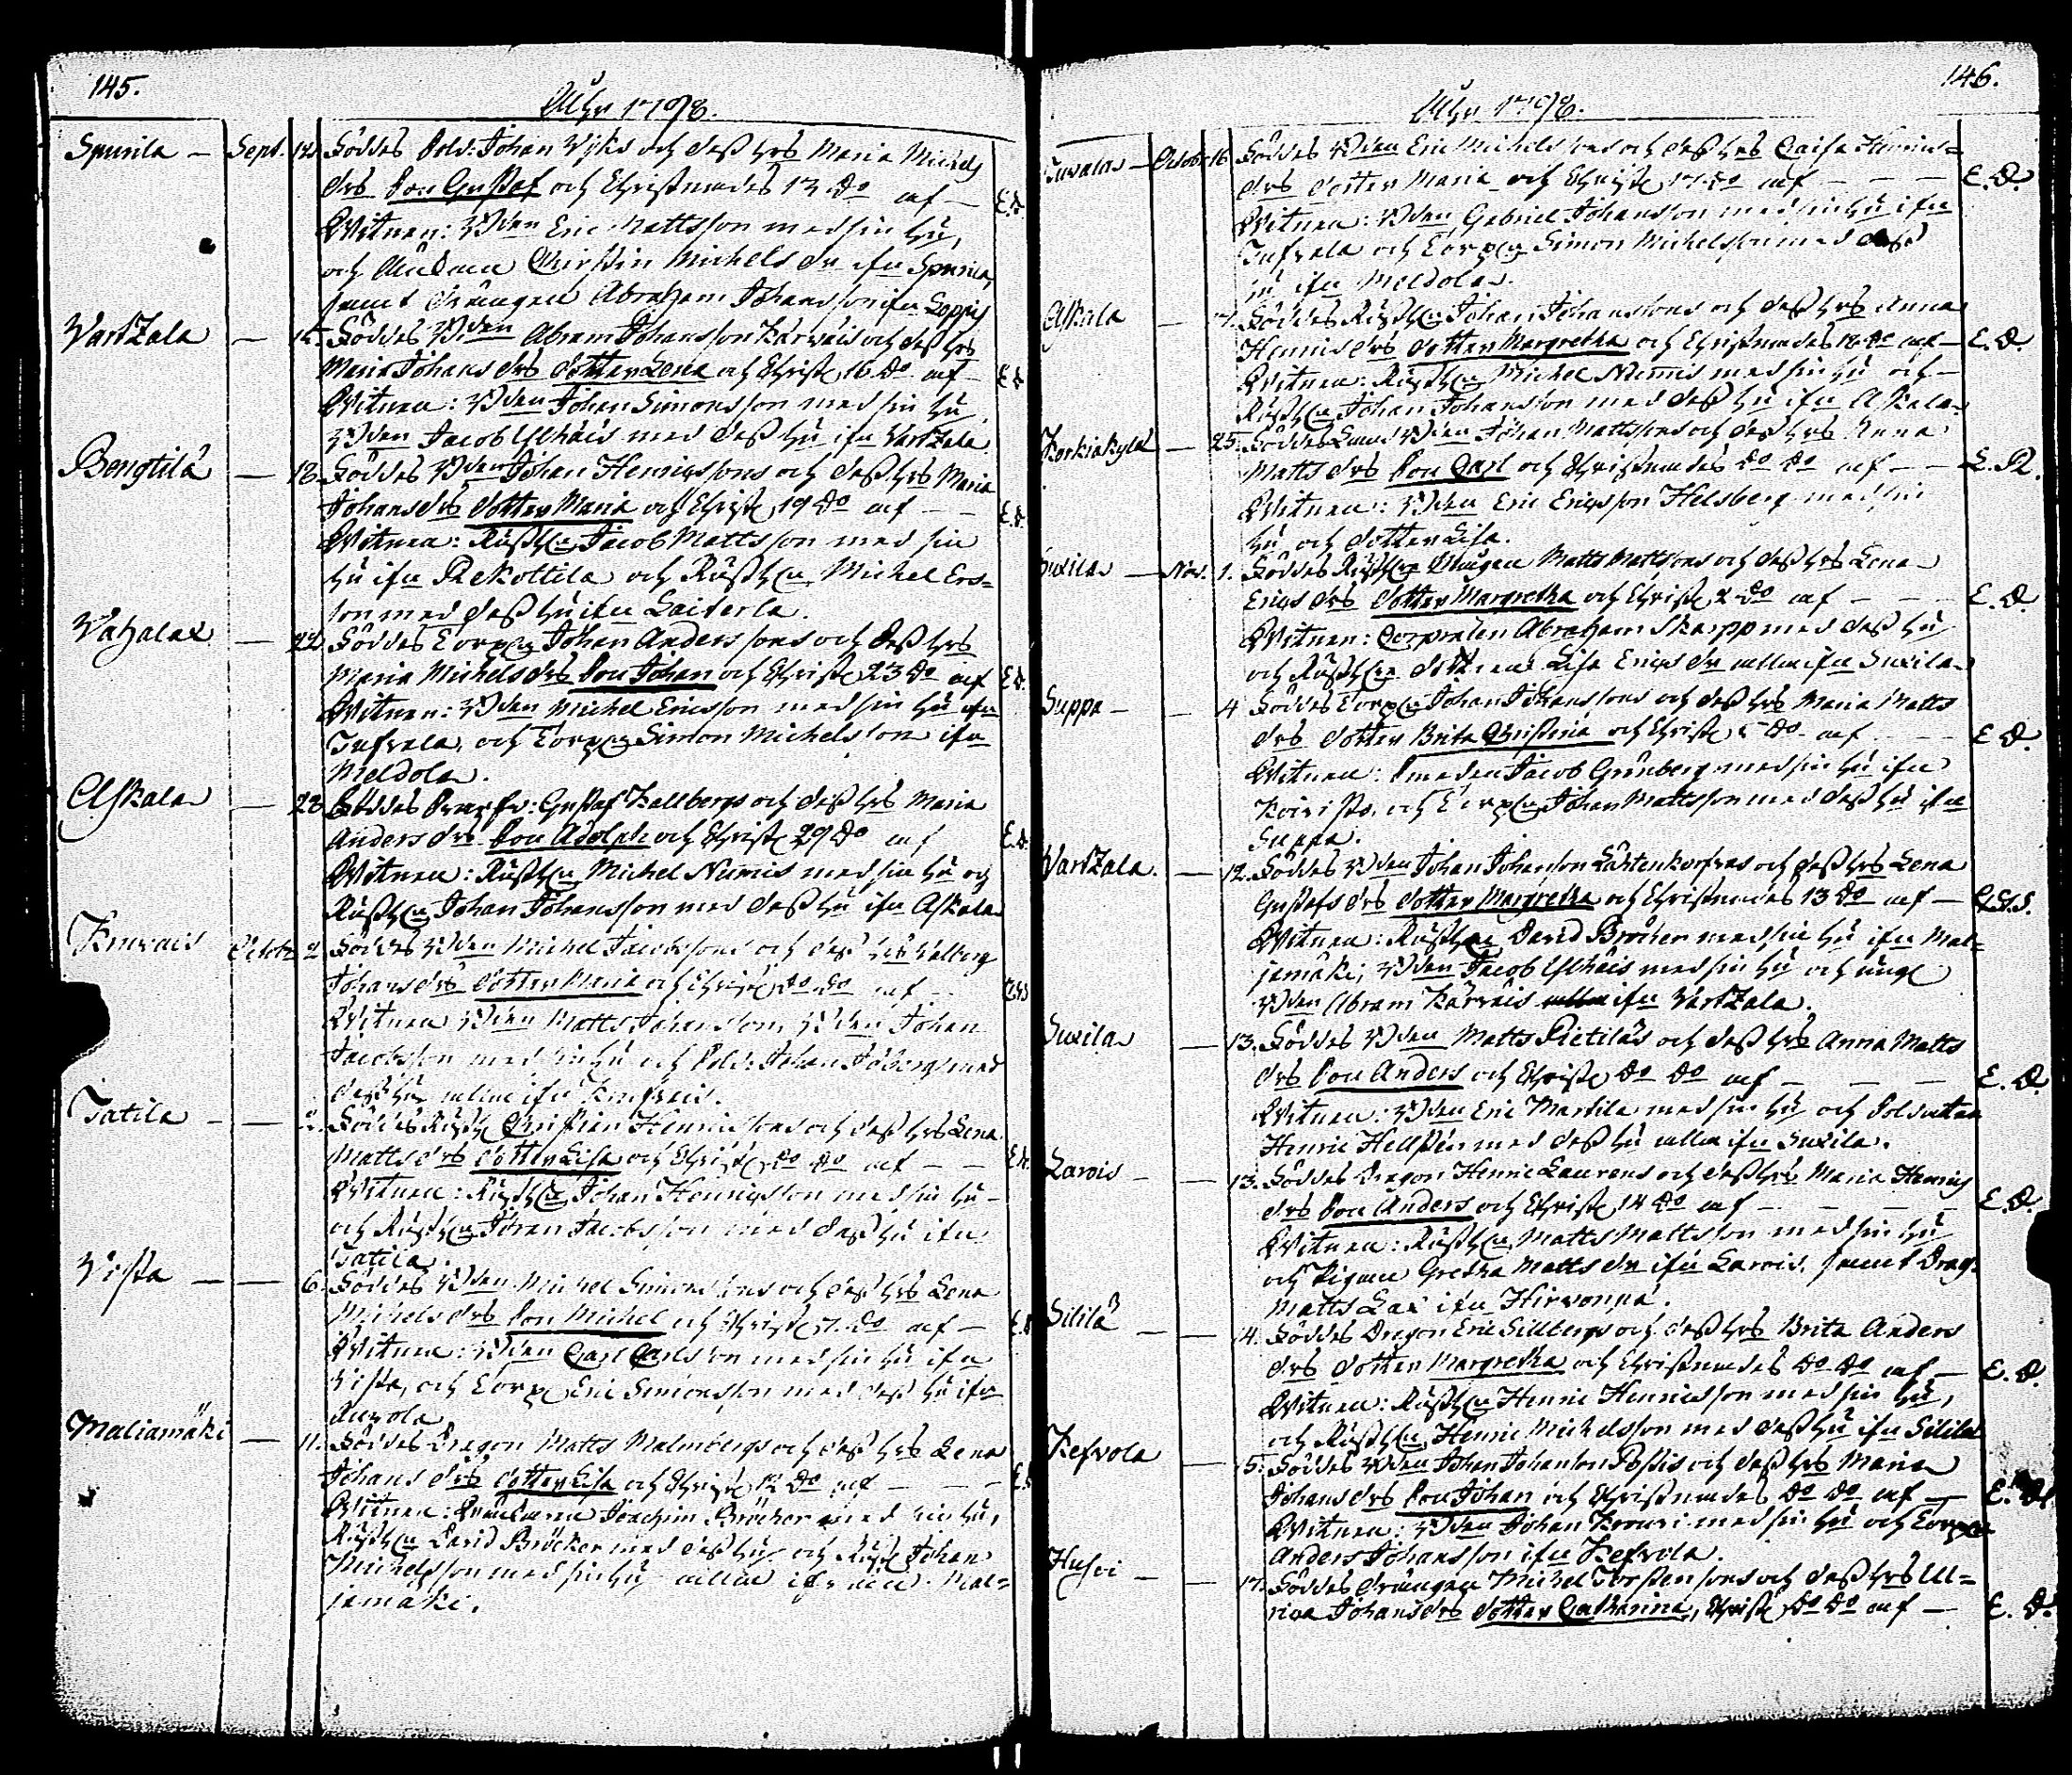 145.
Åhr 1798.
Spurila — Sept. 12. Föddes Sold. Johan Wijks och dess hrs Maria Michels
drs Son Gustaf och Christnades 13 do af — E.D.
Witnen: Bden Eric Mattsson med sin hu,
och Änckan Christin Michels dr ifn Spurila,
samt drängen Abraham Johansson ifn Loppis
Vartzala — 15. Föddes Bden Abram Johansson Karvais och dess hrs
Maria Johans drs dotter Lena och Christ 16 do af — E.D.
Witnen: Bden Johan Simonsson med sin hu
Bden Jacob Ylhäis med dess hu ifn Vartzala.
Bengtilä — 18. Föddes Bden Johan Henricssons och dess hrs Maria
Johansdrs dotter Maria och Christ 19 do af — — E.D.
Witnen: Rusthn Jacob Mattsson med sin
hu ifn Rekottila och Rusthn Michel Ers-
son med dess hu ifn Laiterla.
Vähalax — 22. Föddes Torpn Johan Anders sons och dess hrs
Maria Michels drs Son Johan och Christ 23 do af E.D.
Witnen: Bden Michel Ericsson med sin hu ifn
Tufvala, och Torpn Simon Michelsson ifn
Meldola.
Askala — 28. Föddes Gustaf Kallbergs och dess hrs Maria
Anders drs Son Adolph och Christ 29 do af E.D.
Witnen: Rusthn Michel Numis med sin hu och
Rusthn Johan Johansson med dess hu ifn Askala
Knuvais Octobr 2. Föddes Bden Michel Jacobssons och dess hrs Valborg
Johans drs dotter Maria och Christ do do af —
Witnen Bden Matts Johansson, Bden Johan
Jacobsson med sin hu och Sold. Johan Söbergs med
dess hu allan ifn Knufvais.
Tatila — — Föddes Rusth Christian Henrics sons och dess hrs Lena
Matts drs dotter Lisa och Christ do do af — — E.D.
Witnen: Rusthn Johan Henricsson med sin hu
och Rusthn Johan Jacobsson med dess hu ifn
Tatila.
Vista — — 6. Föddes Bden Michel Simons sons och dess hrs Lena
Michels drs Son Michel och Christ 7. do af — E.D.
Witnen: Bden Carl Carlsson med sin hu ifn
Vista, och Torp Eric Simonsson med dess hu ifn

Maliamäki — 11. Föddes Dragon Matts Malmbergs och dess hrs Lena
Johans drs dotter Lisa och Christ 12 do af — — —
Witnen: Joachim Bröcker med sin hu,
Rusthn David Bröcker med dess hu och Rusth Johan
Michelsson med sin hu allan ifn Mal-
jamäki.
146.
Åhr 1798.
Tuvala — Octobr 16. Föddes Bden Eric Michelssons och dess hrs Caisa Henrics-
drs dotter Maria och Christ 17. do af — — — E.D.
Witnen: Bden Gabriel Johansson med sin hu ifn
Tufvala och Torpn Simon Michelsson med dess
hu ifn Meldola.
Askala — 17. Föddes Rusthn Johan Johanssons och dess hrs Anna
Henrics drs dotter Margretha och Christnades 18 do af — E.D.
Witnen: Rusthn Michel Numis med sin hu och —
Rusthn Johan Johansson med dess hu ifn Askala
Korkiakylä — 25. Föddes Bden Johan Mattssons och dess hrs Anna
Matts drs Son Carl och Christnades do do af — — E.R.
Witnen: Bden Eric Ericsson Helsberg med sin
hu och dotter Lisa.
Suxila — Nov. 1. Föddes Rusthn Mågen Matts Mattsons och dess hrs Lena
Erics drs dotter Margretha och Christ 2 do af — — — E.D.
Witnen: Corporalen Abraham Skarpp med dess hu
och Rusthn Lisa Erics dr allan ifn Suxila
Suppa — — 4 Föddes Torpn Johan Johanssons och dess hrs Maria Matts
drs dotter Brita Christina och Christ 5 do af — — E.D.
Witnen: Smeden Jacob Grönberg med sin hu ifn
Koiristo, och Torpn Johan Mattsson med dess hu ifn
Suppa.
Vartzala. — 12. Föddes Bden Johan Johansson och dess hrs Lena
Gustafs drs dotter Margretha och Christnades 13 do af —
Witnen: Rusthn David Bröcker med sin hu ifn Mal-
jamäki, Bden Jacob Ylhäis med sin hu och unge
Bden Abram Karvais ifn Vartzala.
Suxila — 13. Föddes Bden Matts Pietiläs och dess hrs Anna Matts
drs Son Anders och Christ do do af — — — E.D.
Witnen: Bden Eric Martila med sin hu och Soldaten
Henric Hellsten med dess hu allan ifn Suxila.
Karvis — — 13. Föddes Dragon Henric Laurens och dess hrs Maria Henrics
drs Son Anders och Christ 14 do af — — — E.D.
Witnen: Rusthn Matts Mattsson med sin hu
och Pigan Gretha Matts dr ifn Karvis, samt Drag.
Matts Lax ifn Hirvonpä.
Sililä — — 14. Föddes Dragon Eric Sillbergs och dess hrs Brita Anders
drs dotter Margretha och Christnades do do af — E.D.
Witnen: Rusthn Henric Henricsson med sin hu,
och Rusthn Henric Michelsson med dess hu ifn Sililä
Kefvola — 15. Föddes Bden Johan Johansson Påstis och dess hrs Maria
Johans drs Son Johan och Christnades do do af — E.D.
Witnen: Bden Johan Krouvi med sin hu och Torpn
Anders Johansson ifn Kefvola.
Husvi — — 17. Föddes drängen Michel Torstenssons och dess hrs Ul-
rica Johans drs dotter Catharina, Christ do do af — E.D.